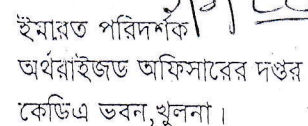 ইমারত পরিদর্শক
অর্থরাইজড অফিসারের দপ্তর
কেডিএ ভবন,খুলনা।